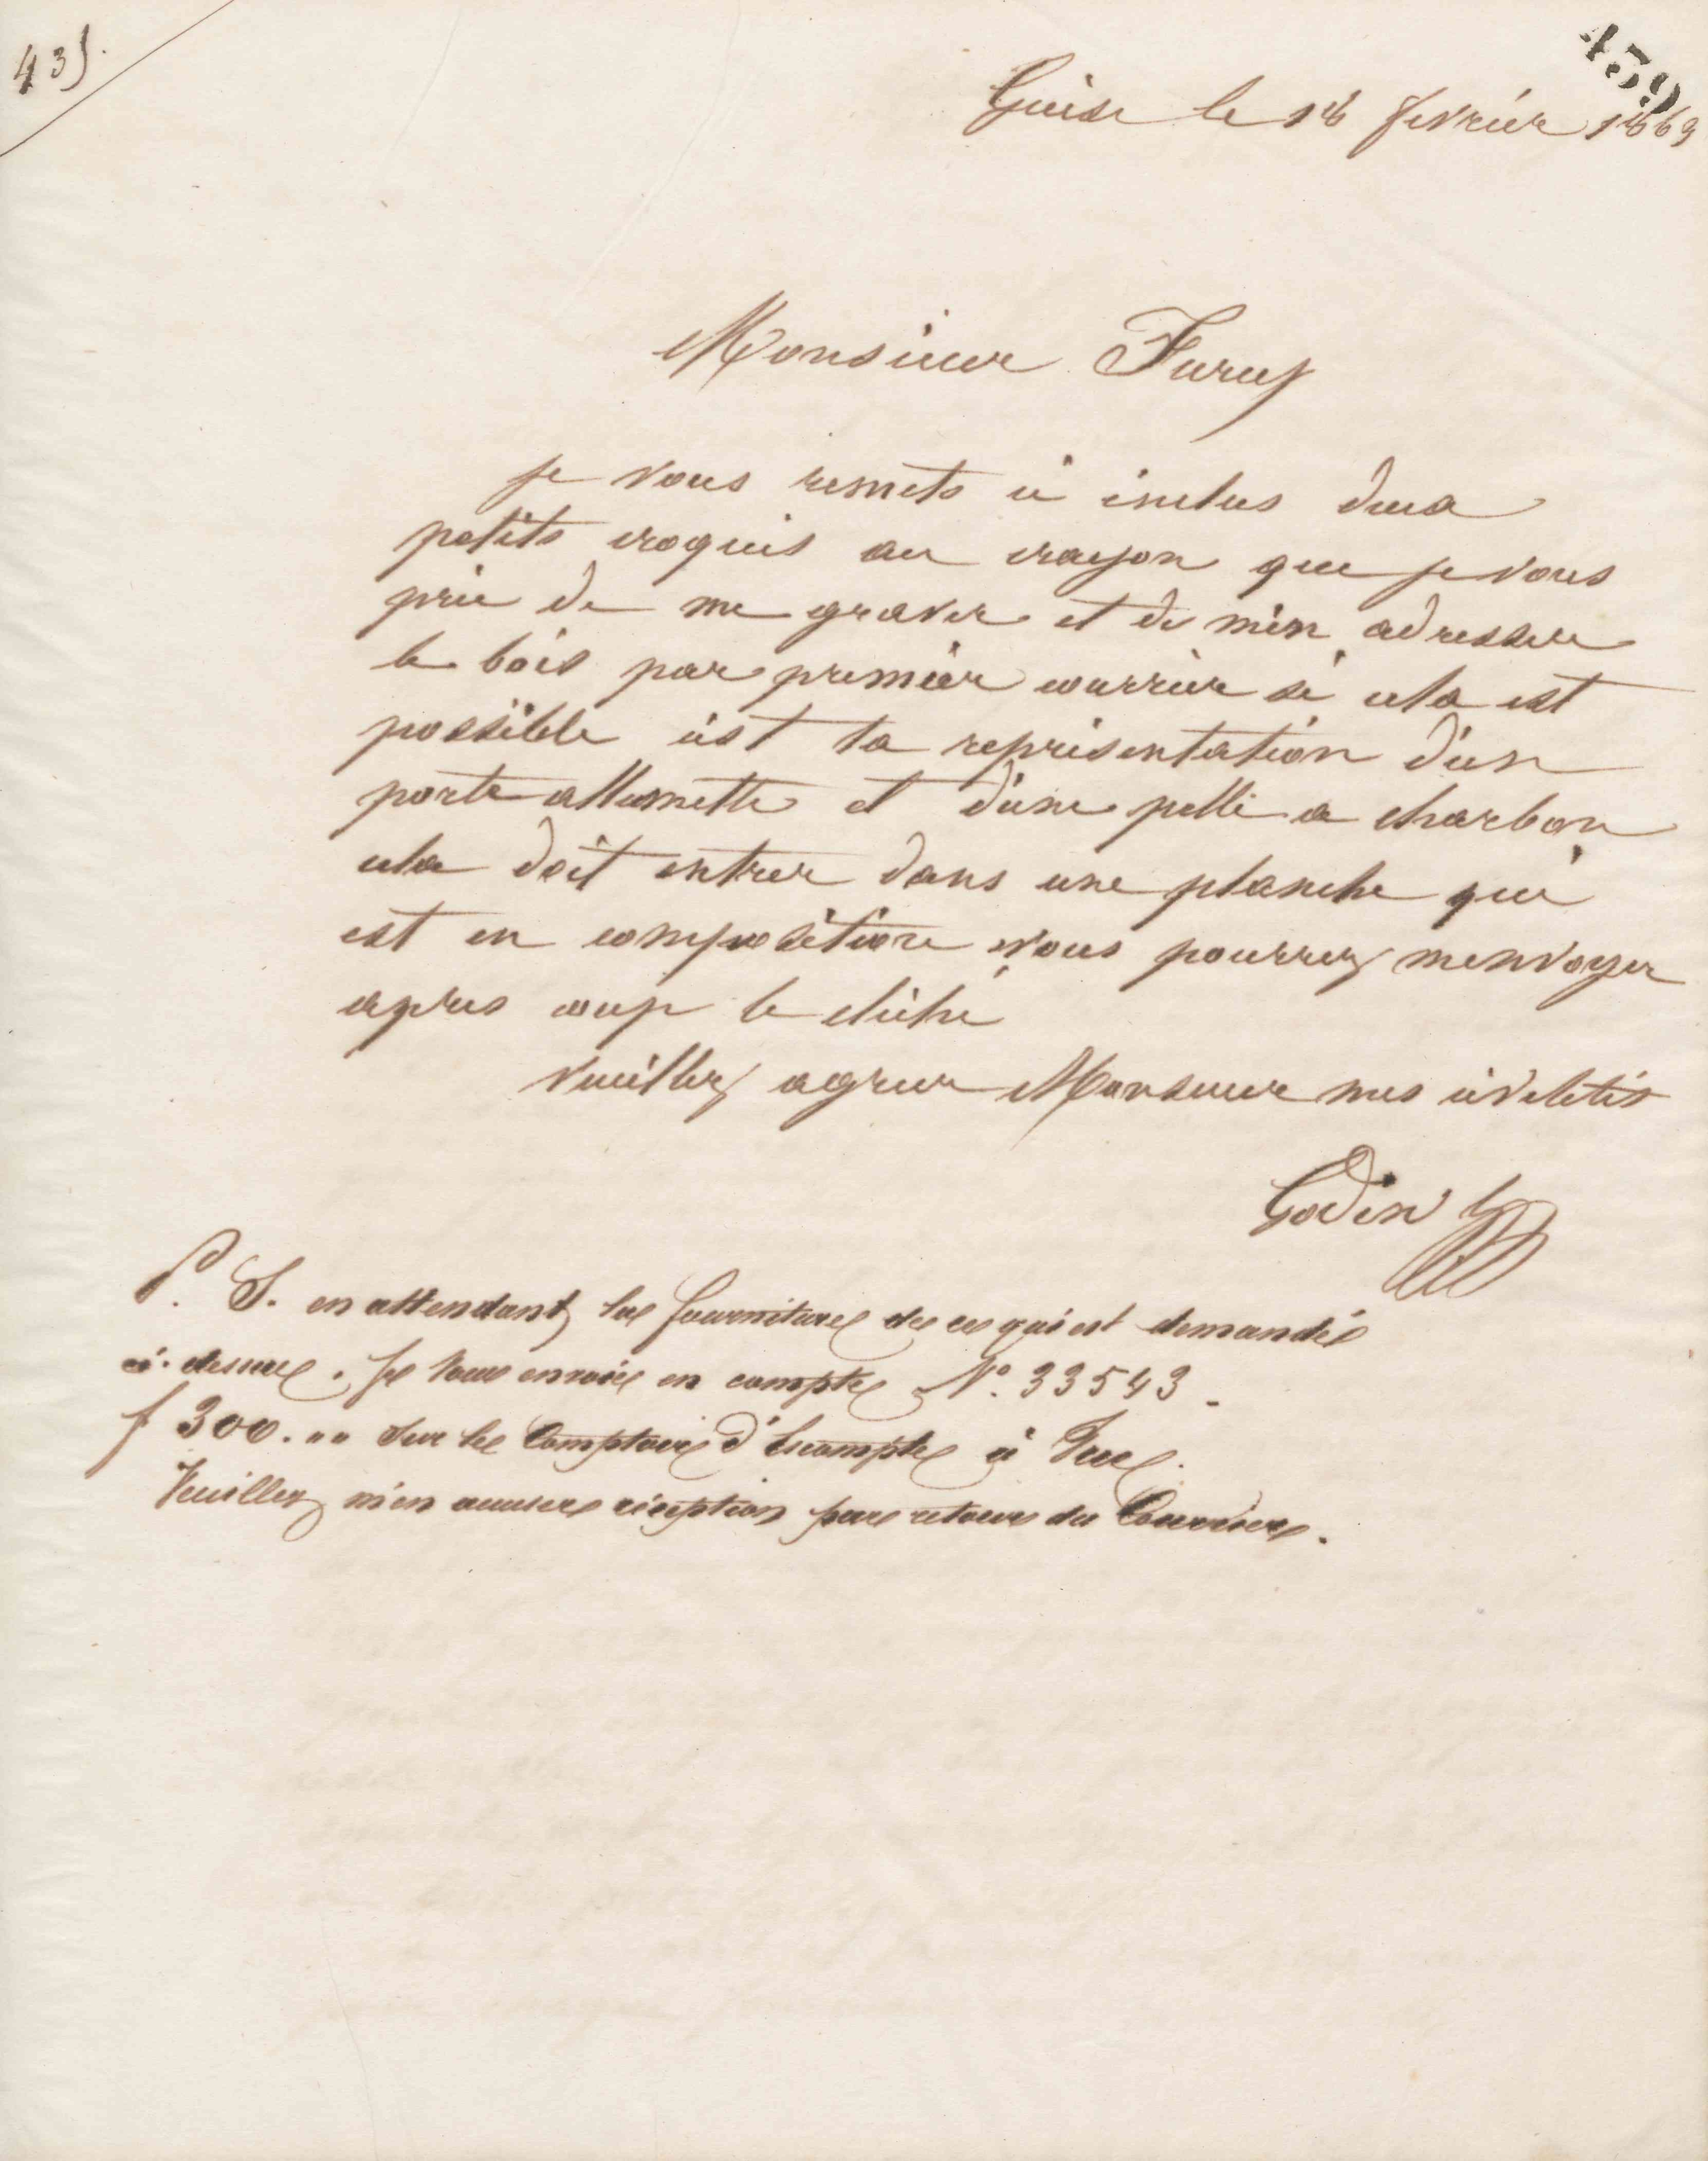 435.
439
Guise le 18 fevrier 1863
Monsieur Furey
je vous remets ci inclus deux
petits croquis au crayon que je vous
prie de me graver et de m'en adresser
le bois par premier courrier si cela est
possible c'est la représentation d'un
porte allumette et d'une pelle a charbon
cela doit entrer dans une planche qui
est en composition vous pourrez menvoyer
apres coup le cliché
veuillez agreer Monsieur mes civilités
Godin
P. S. en attendant la fourniture de ce qui est demandé
ci-dessus. Je vous envoie en compte N°. 33543.
f 300. „ Sur le Comptoir d'Escompte à vue.
Veuillez m'en accuser réception par retour du Courrier.